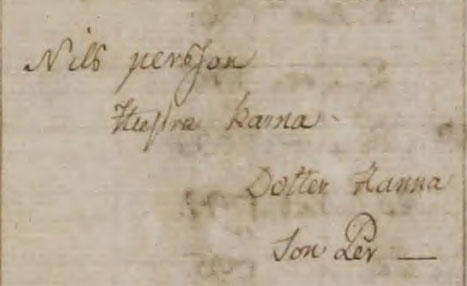 Nils persson
Hustra karna
Dotter Hanna
Son Per —